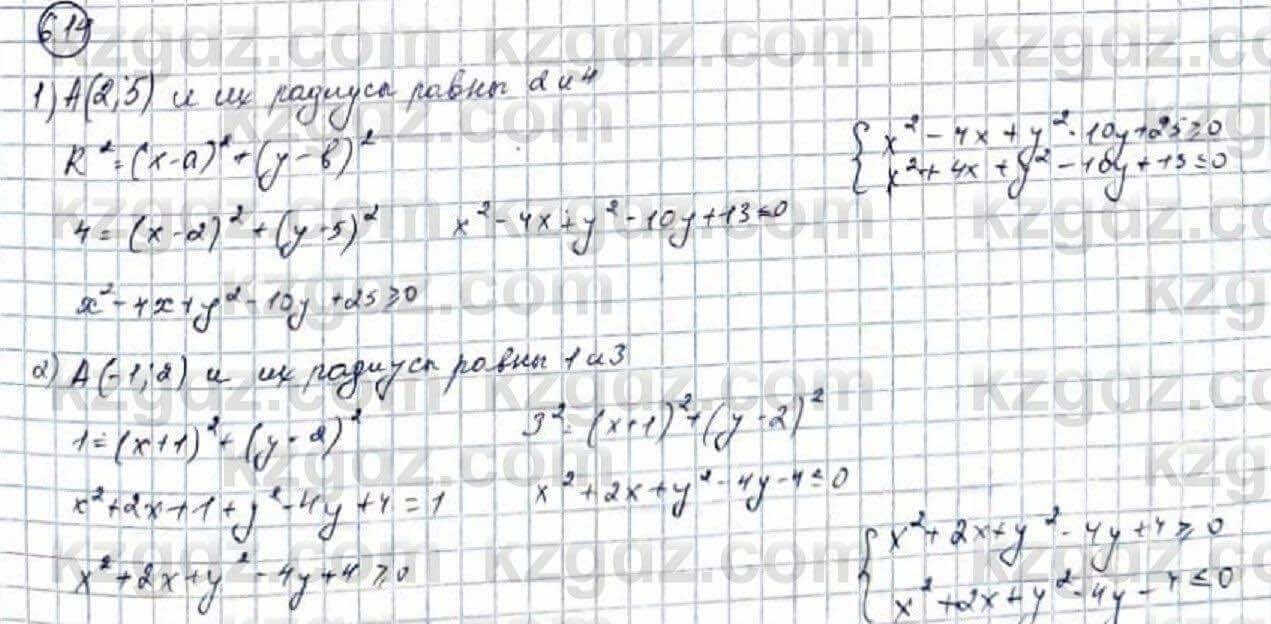 6.14
1) A(2;5) и их радиусы равны 2 и 4
R² = (x-a)² + (y-b)²
4 = (x-2)² + (y-5)²
x² - 4x + y² - 10y + 13 ≤ 0
x² - 4x + y² - 10y + 25 ≥ 0
{ x² - 4x + y² - 10y + 25 ≥ 0
x² + 4x + y² - 10y + 13 ≤ 0
2) A(-1;2) и их радиусы равны 1 и 3
1 = (x+1)² + (y-2)²
x² + 2x + 1 + y² - 4y + 4 = 1
x² + 2x + y² - 4y + 4 ≥ 0
3² = (x+1)² + (y-2)²
x² + 2x + y² - 4y - 4 ≤ 0
{ x² + 2x + y² - 4y + 4 ≥ 0
x² + 2x + y² - 4y - 4 ≤ 0
kzgdz.com